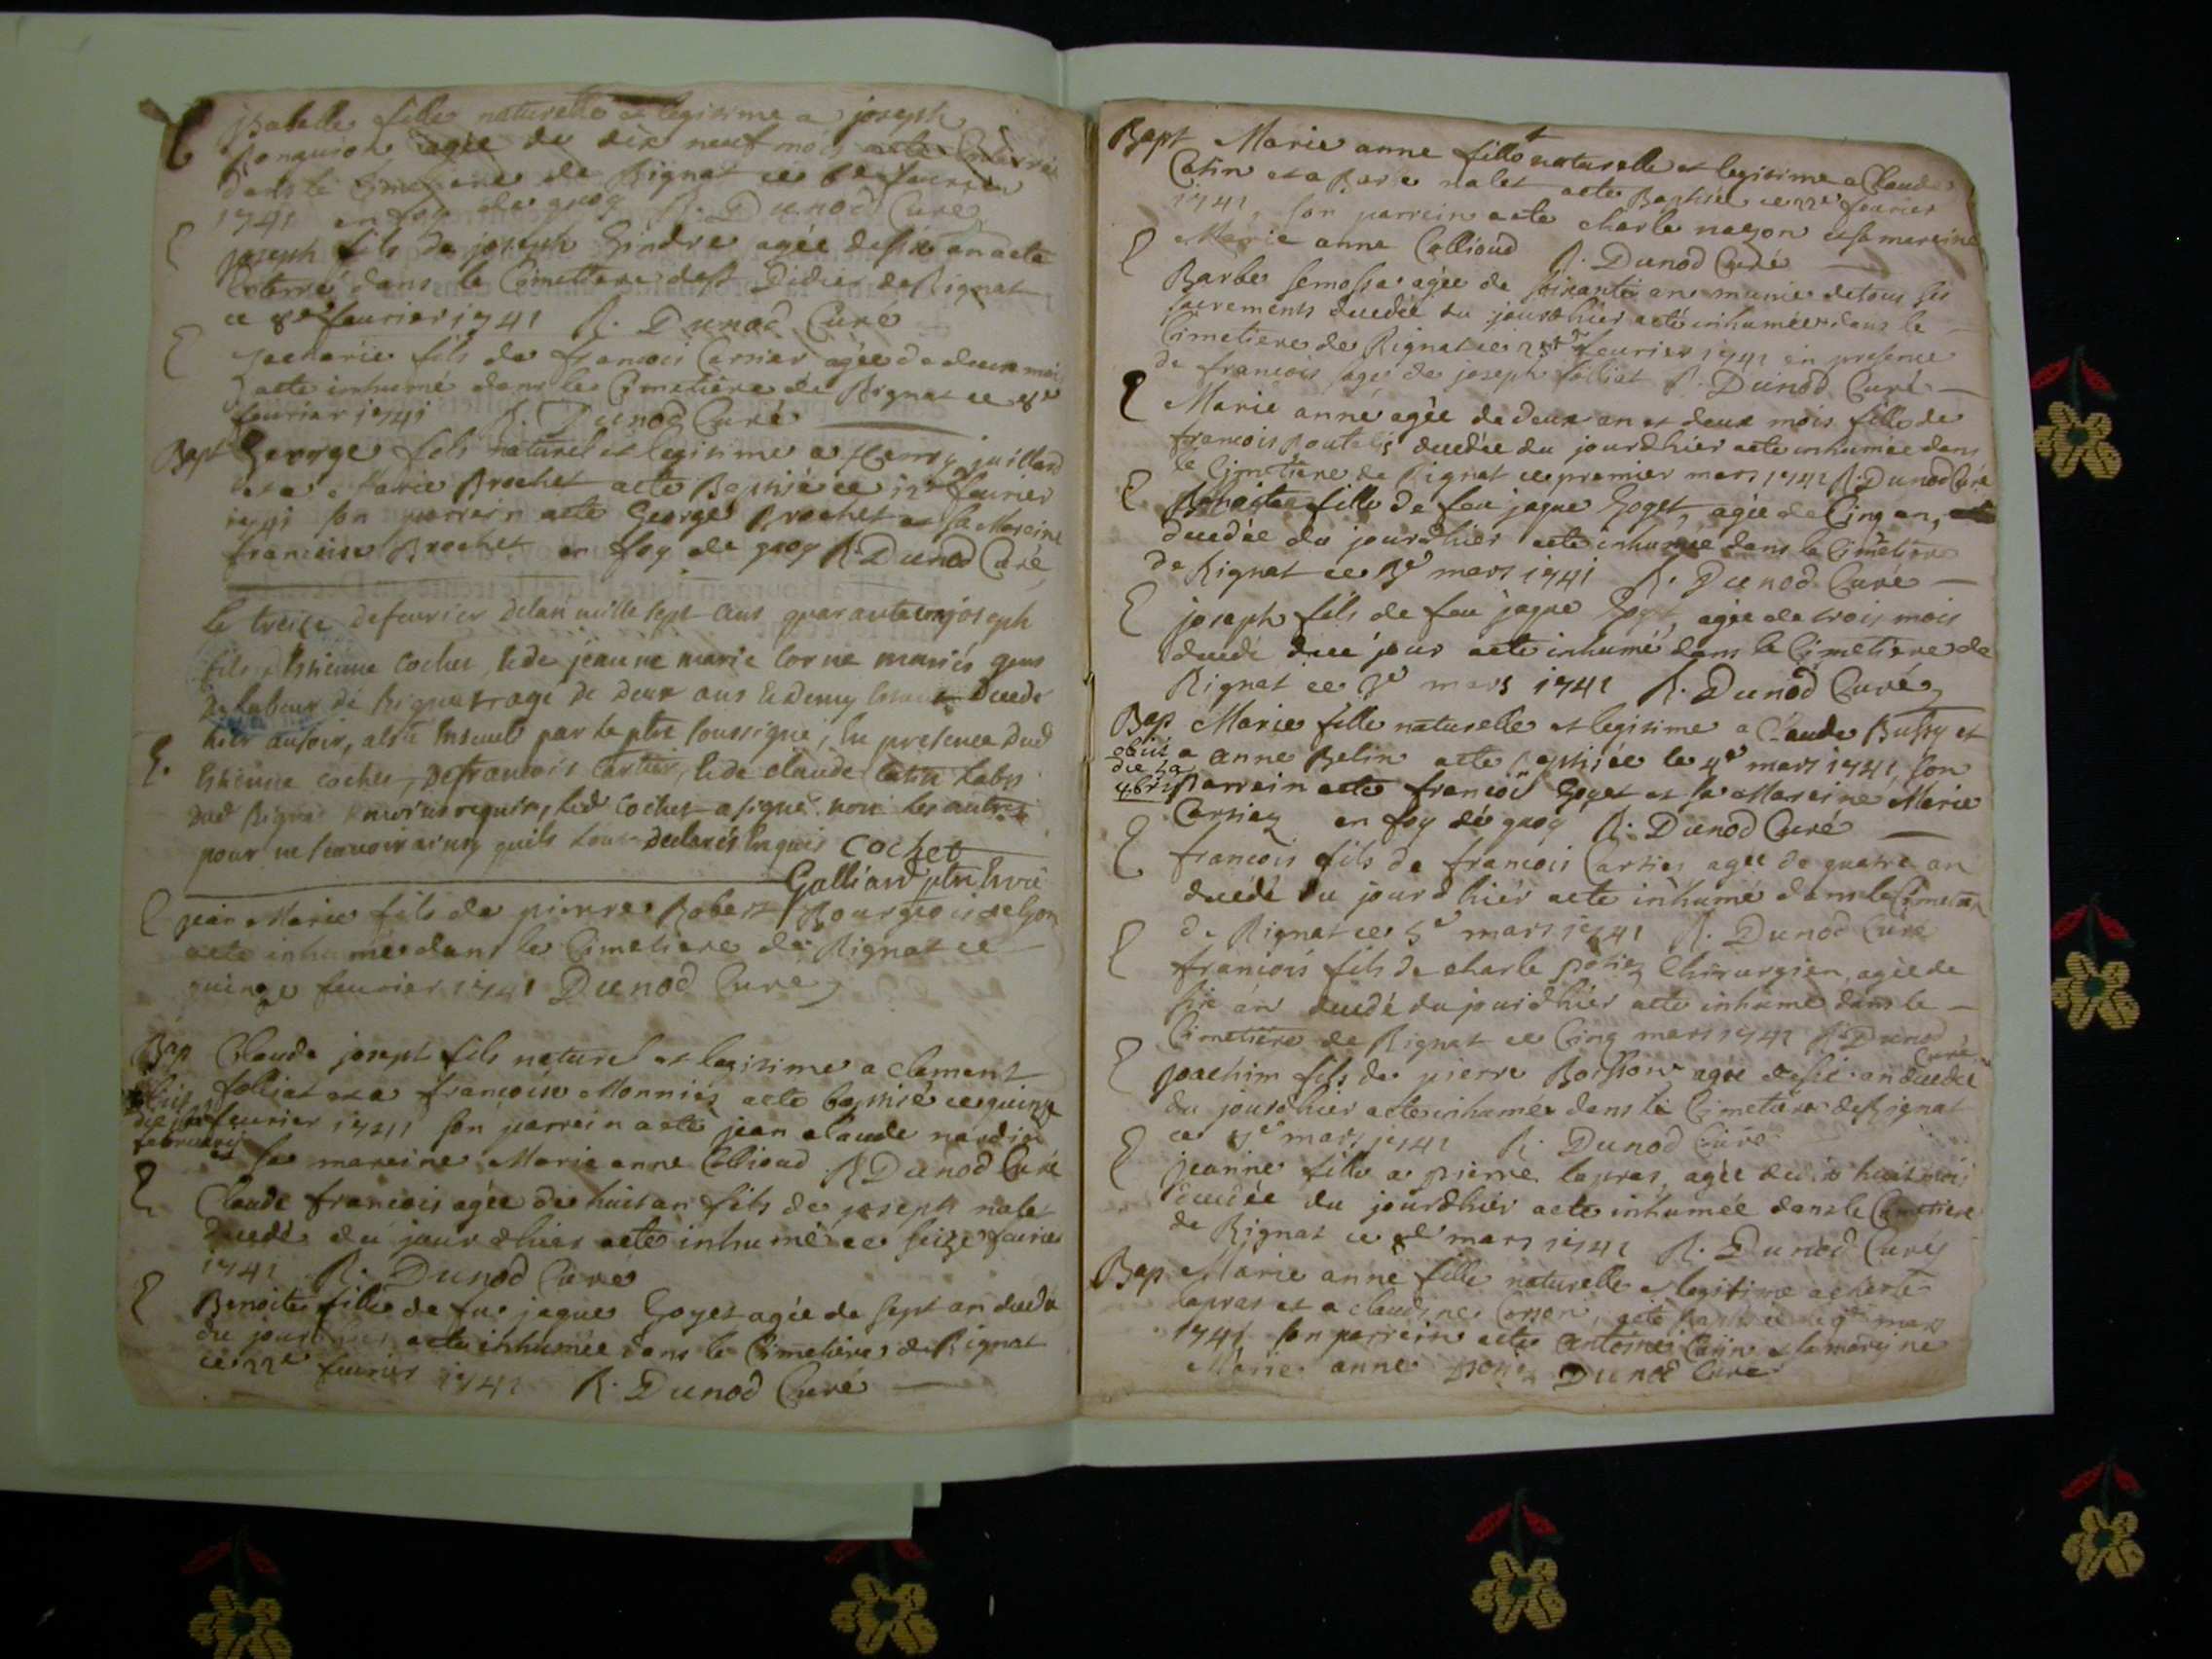 E Isabelle fille naturelle et legitime a joseph
agée de dix neuf mois Enterrée
dans le Cimetiere de Rignat ce feurier
1741 en foy de quoy R. Dunod Curé
E joseph fils de joseph Gindre agée de six an a ete
Enterré dans le Cimetiere de St Didier de Rignat
ce 8e feurier 1741 R. Dunod Curé
E fils de francois Carrier agée de deux moi
a ete inhumé dans le Cimetiere de Rignat ce 8e
feurier 1741 R. Dunod Curé
Bapt George fils naturel et legitime a juilland
et a Marie Brochet a ete Baptisé ce 12e feurier
1741 son parrein a ete George Brochet et sa Mareine
francoise Brochet en foy de quoy R. Dunod Curé
Le treize de feurier de lan mille sept cens quarante un joseph
fils Estienne cochet, & de jeanne marie Corne mariés gens
de labeur de Rignat agé de deux ans & demy decede
hier au soir, a este par le ptre soussigné, en presence dud
E. Estienne cochet, de francois Cartier, & de claude Catin Labrs
dud Rignat requis, led cochet a signé non les autres
pour ne scauoir ainsy quils Declarés Enquis Cochet
Galliand ptre
E jean Marie fils de pierre Robert Bourgeois de lyon
a ete inhumée dans le Cimetiere de Rignat ce
quinze feurier 1741 Dunod Curé
Bap Claude josept fils naturel et legitime a clement
obiit folliat et a francoise Monnier a ete baptisé ce quinze
die feurier 1741 son parrein a ete jean claude nardin
february et sa mareine Marie anne Collioud R. Dunod Curé
E Claude francois agée de huit an fils de joseph nalet
decedé du jour dhier a ete inhumé ce seize feurier
1741 R. Dunod Curé
E Benoite fille de fu jaque Goyet agée de sept an decedé
du jour dhier a ete inhumée dans le Cimetiere de Rignat
ce 22e feurier 1741 R. Dunod Curé
Bapt Marie anne fille naturelle et legitime a Claude
Catin et a nalet a ete Baptisée ce 22e feurier
1741, son parrein a ete charle nayon et sa mareine
Marie anne Collioud R. Dunod Curé
E Barbe Semossa agée de soixante an munie de tous ses
sacrements decedée du jourdhier a eté inhumée dans le
Cimetiere de Rignat ce feurier 1741 en presence
de francois age de joseph folliat R. Dunod Curé
E Marie anne agée de deux an et deux mois fille de
francois decedée du jourdhier a ete inhumée dans
le Cimetiere de Rignat ce premier mars 1741 R. Dunod Curé
E Benoite fille de feu jaque Goyet, agée de Cinq an,
decedée du jourdhier a ete inhumée dans le Cimetiere
de Rignat ce 3e mars 1741 R. Dunod Curé
E joseph fils de feu jaque Goyet, agée de trois mois
decedé du jour a ete inhumé dans le Cimetiere de
Rignat ce 3e mars 1741 R. Dunod Curé
Bap Marie fille naturelle et legitime a Claude Bussy et
obiit a anne Belin a ete baptisée le 4e mars 1741, son
die 4bris parrein a ete francois Goyet et sa Mareine Marie
en foy de quoy R. Dunod Curé
E francois fils de francois Cartier agée de quatre an
decedé du jourdhier a ete inhumé dans le Cimetiere
de Rignat ce 5e mars 1741 R. Dunod Curé
E francois fils de charle Chirurgien, agée de
six an decedé du jourdhier a ete inhumé dans le
Cimetiere de Rignat ce Cinq mars 1741 R. Dunod
Curé
E joachim fils de pierre Boisson agée de six an decedé
du jourdhier a ete inhumée dans le Cimetiere de Rignat
ce mars 1741 R. Dunod Curé
E jeanne fille a pierre lapras, agée de dix huit moi
decedée du jourdhier a ete inhumée dans le Cimetiere
de Rignat ce mars 1741 R. Dunod Curé
Bap Marie anne fille naturelle et legitime a charle
lapras et a claudine a ete Baptisée ce 9e mars
1741 son parrein a ete Antoine Catin et sa mareine
Marie anne Dunod Curé